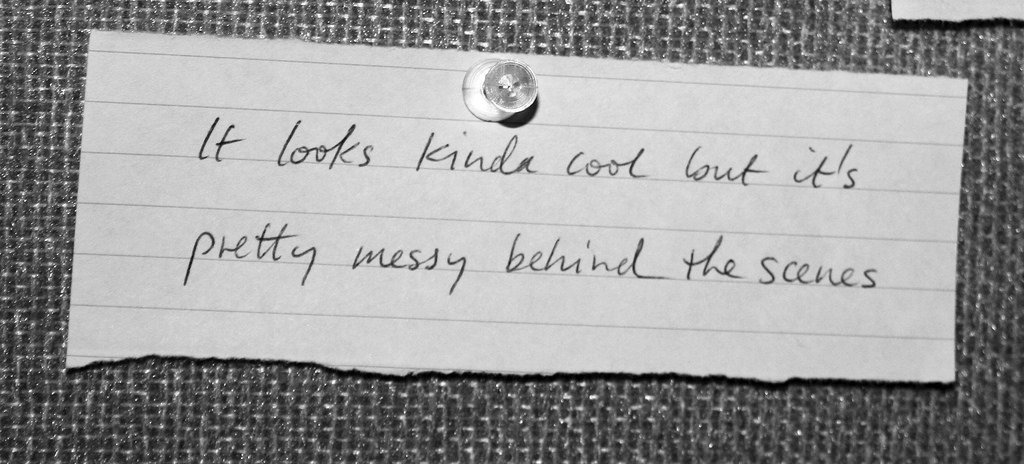 It looks kinda cool but it's
pretty messy behind the scenes